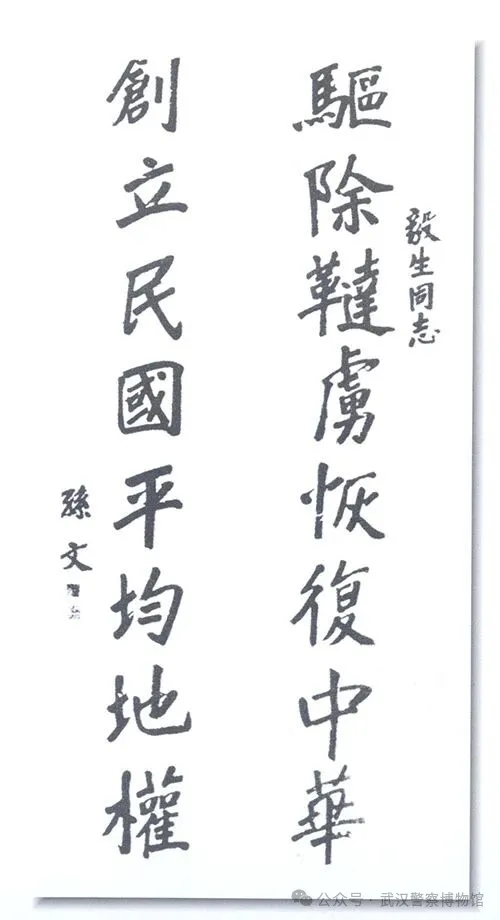 毅生同志
驅除韃虜恢復中華
創立民國平均地權
孫文
公众号·武汉警察博物馆